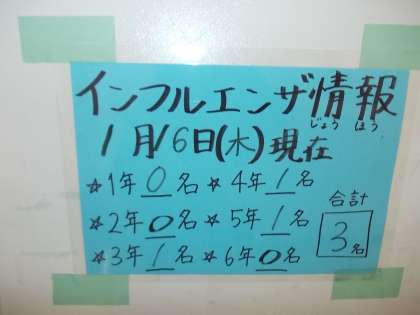 インフルエンザ情報
じょう ほう
1月16日(木)現在
☆1年 0名 ☆4年 1名
☆2年 0名 ☆5年 1名
☆3年 1名 ☆6年 0名
合計
3名